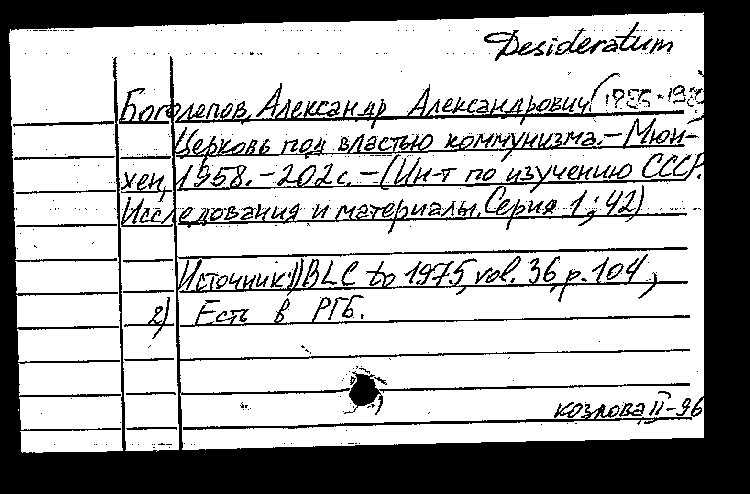 Desideratum
Боголепов, Александр Александрович
Церковь под властью коммунизма.-Мюн-
хен, 1958.-202с.-(Ин-т по изучению СССР.
Исследования и материалы. Серия 1; 42)
Источник: 1) BLC to 1975, vol. 36, p. 104;
2) Есть в РГБ.
козлова, II-96